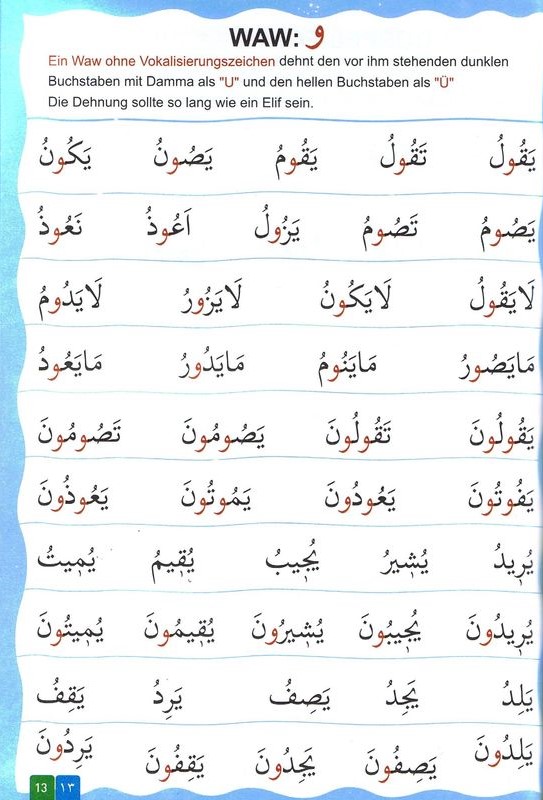 WAW: و
Ein Waw ohne Vokalisierungszeichen dehnt den vor ihm stehenden dunklen
Buchstaben mit Damma als "U" und den hellen Buchstaben als "Ü"
Die Dehnung sollte so lang wie ein Elif sein.
يَقُولُ تَقُولُ يَقُومُ يَصُونُ يَكُونُ
يَصُومُ تَصُومُ يَزُولُ اَعُوذُ نَعُوذُ
لَايَقُولُ لَايَكُونُ لَايَزُورُ لَايَدُومُ
مَايَصُورُ مَايَنُومُ مَايَدُورُ مَايَعُودُ
يَقُولُونَ تَقُولُونَ يَصُومُونَ تَصُومُونَ
يَفُوتُونَ يَعُودُونَ يَمُوتُونَ يَعُوذُونَ
يُرِيدُ يُشِيرُ يُجِيبُ يُقِيمُ يُمِيتُ
يُرِيدُونَ يُجِيبُونَ يُشِيرُونَ يُقِيمُونَ يُمِيتُونَ
يَلِدُ يَجِدُ يَصِفُ يَرِدُ يَقِفُ
يَلِدُونَ يَصِفُونَ يَجِدُونَ يَقِفُونَ يَرِدُونَ
13 ١٣